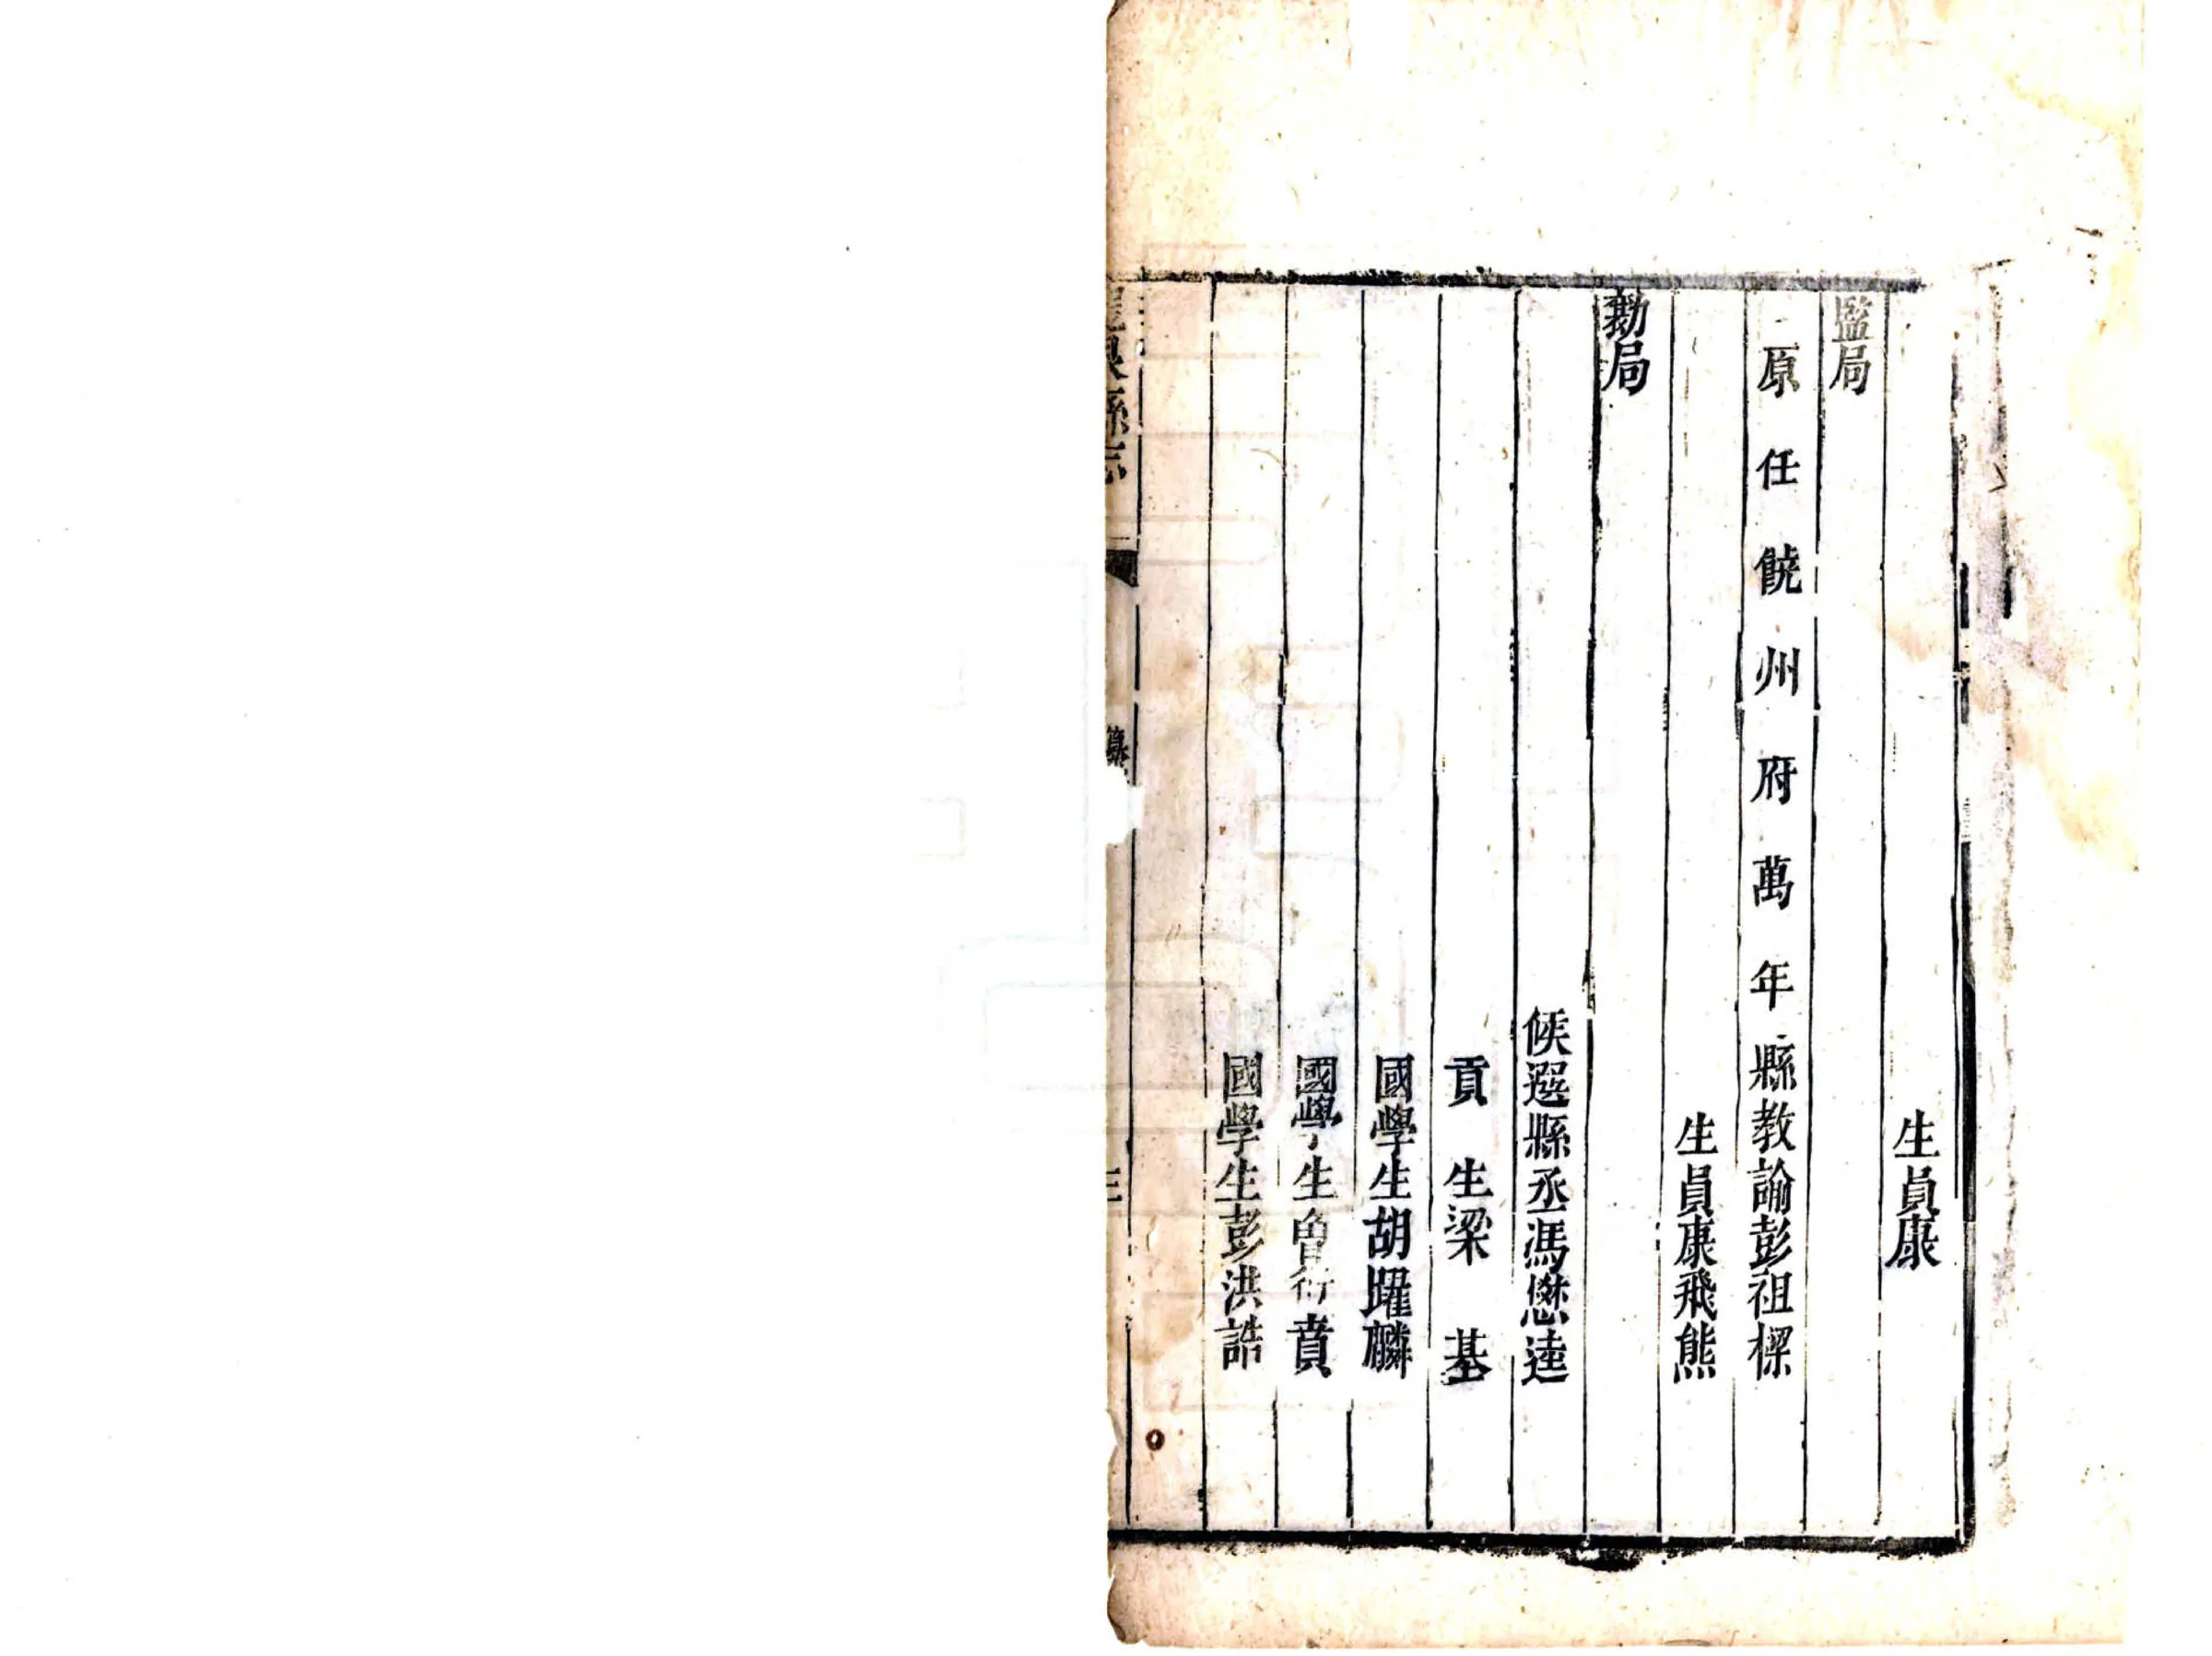 生員康
監局
原任饒州府萬年縣教諭彭祖樑
生員康飛熊
勷局
候選縣丞馮懋逵
貢生梁基
國學生胡躍麟
國學生魯衍賁
國學生彭洪誥
泉縣志
纂
三